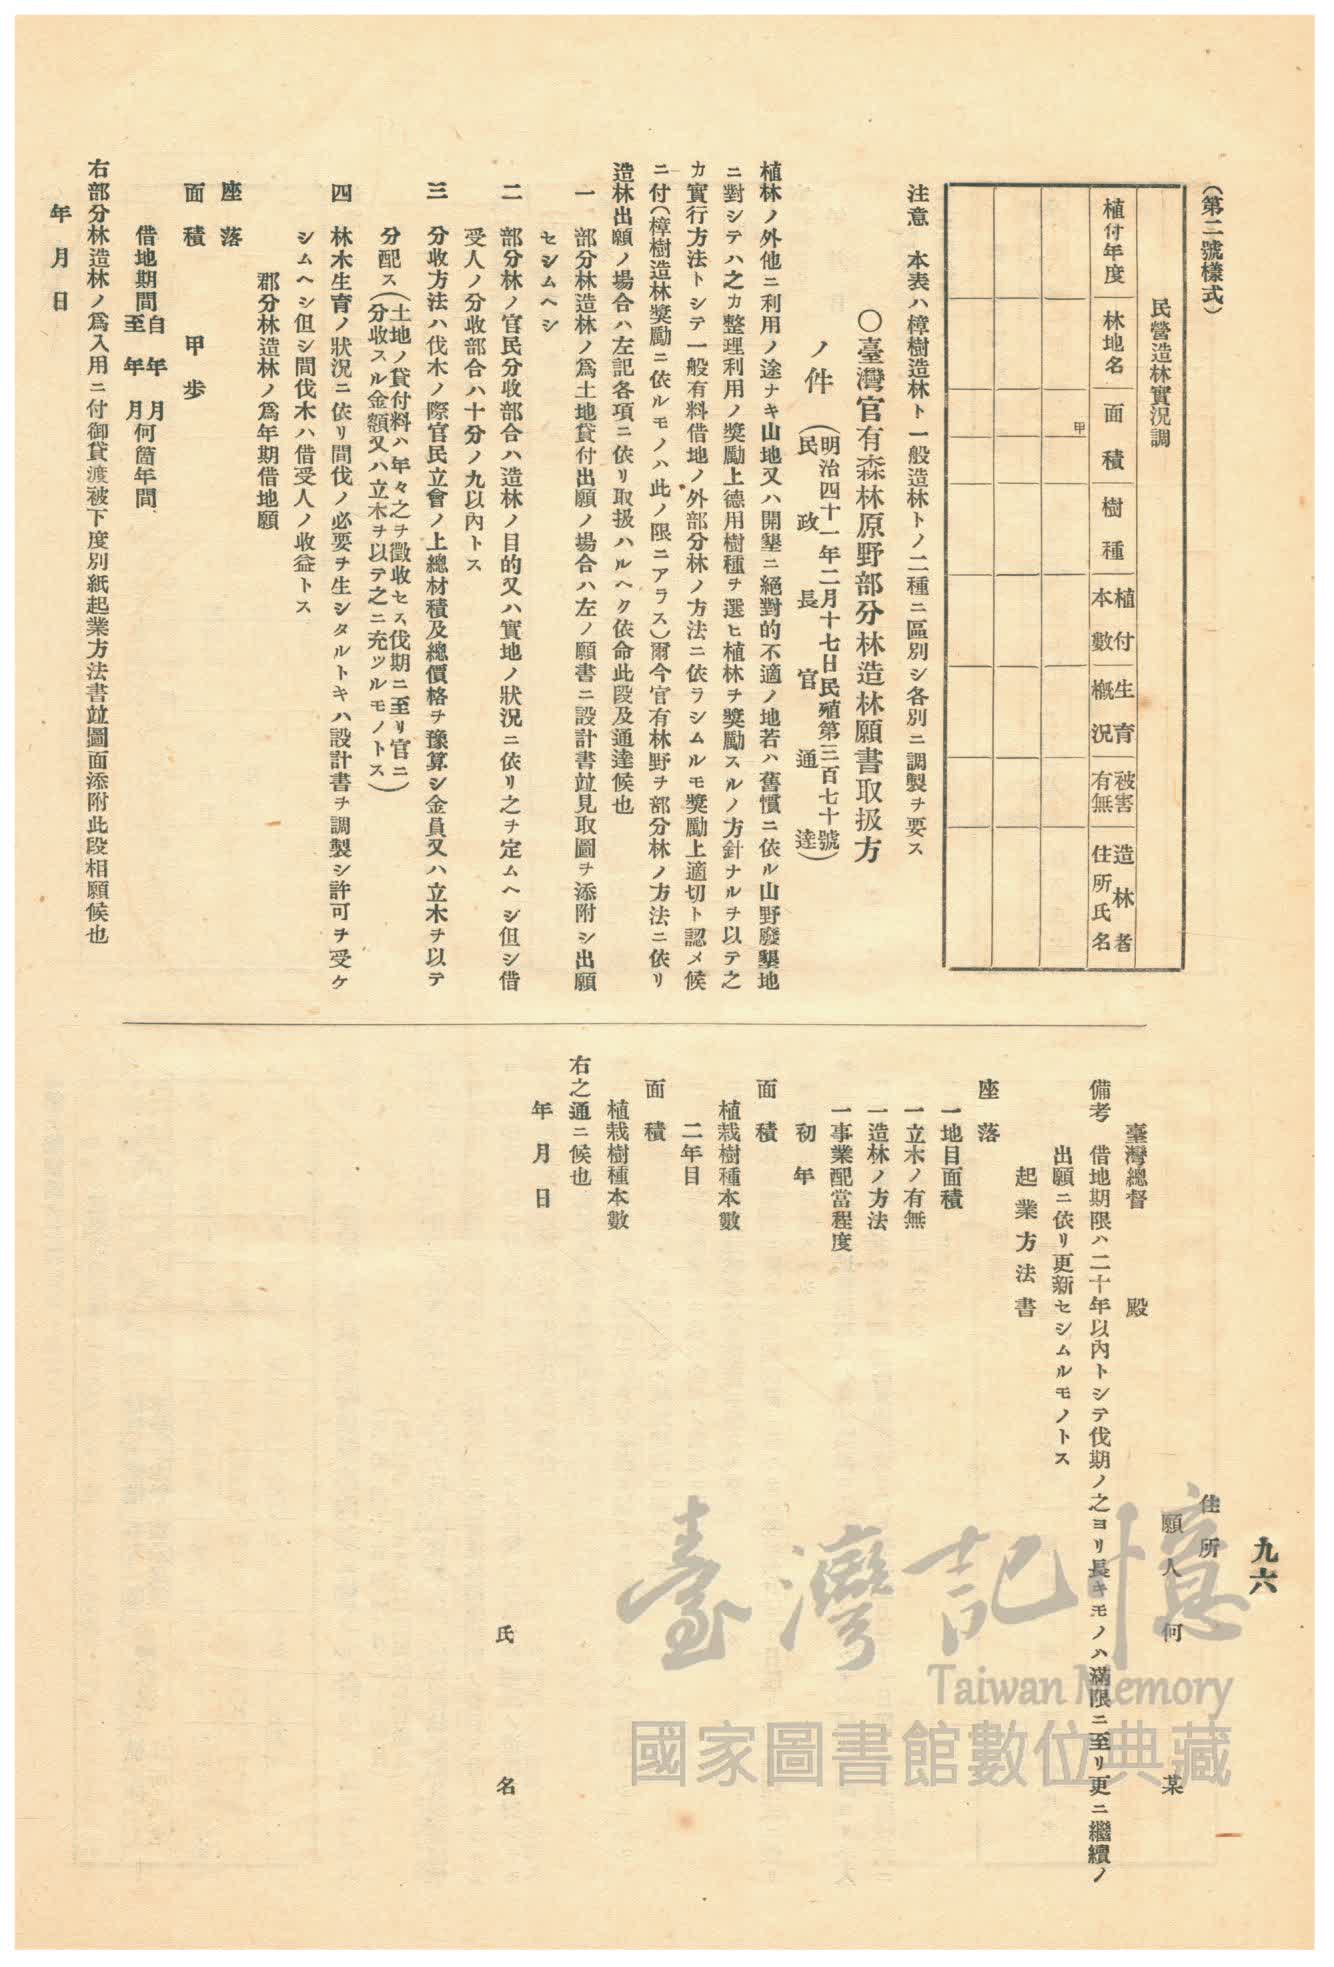 九六
(第二號樣式)
民營造林實況調
植付年度
林地名
面積
樹種
植付本數
生育概況
被害有無
造林者住所氏名
甲
注意 本表ハ樟樹造林ト一般造林トノ二種ニ區別シ各別ニ調製ヲ要ス
〇臺灣官有森林原野部分林造林願書取扱方
ノ件(明治四十一年二月十七日民殖第三百七十號
民政長官通達)
植林ノ外他ニ利用ノ途ナキ山地又ハ開墾ニ絕對的不適ノ地若ハ舊慣ニ依ル山野廢墾地
ニ對シテハ之カ整理利用ノ獎勵上德用樹種ヲ選ヒ植林ヲ獎勵スルノ方針ナルヲ以テ之
カ實行方法トシテ一般有料借地ノ外部分林ノ方法ニ依ラシムルモ獎勵上適切ト認メ候
ニ付(樟樹造林獎勵ニ依ルモノハ此ノ限ニアラス)爾今官有林野ヲ部分林ノ方法ニ依リ
造林出願ノ場合ハ左記各項ニ依リ取扱ハルヘク依命此段及通達候也
一 部分林造林ノ爲土地貸付出願ノ場合ハ左ノ願書ニ設計書竝見取圖ヲ添附シ出願
セシムヘシ
二 部分林ノ官民分收部合ハ造林ノ目的又ハ實地ノ狀況ニ依リ之ヲ定ムヘシ但シ借
受人ノ分收部合ハ十分ノ九以內トス
三 分收方法ハ伐木ノ際官民立會ノ上總材積及總價格ヲ豫算シ金員又ハ立木ヲ以テ
分配ス(土地ノ貸付料ハ年々之ヲ徵收セス伐期ニ至リ官ニ
分收スル金額又ハ立木ヲ以テ之ニ充ツルモノトス)
四 林木生育ノ狀況ニ依リ間伐ノ必要ヲ生シタルトキハ設計書ヲ調製シ許可ヲ受ケ
シムヘシ但シ間伐木ハ借受人ノ收益トス
部分林造林ノ爲年期借地願
座落
面積 甲步
借地期間自年月
至年月何箇年間
右部分林造林ノ爲入用ニ付御貸渡被下度別紙起業方法書竝圖面添附此段相願候也
年月日
住所
願人何某
臺灣總督 殿
備考 借地期限ハ二十年以內トシテ伐期ノ之ヨリ長キモノハ滿限ニ至リ更ニ繼續ノ
出願ニ依リ更新セシムルモノトス
起業方法書
座落
一地目面積
一立木ノ有無
一造林ノ方法
一事業配當程度
初年
面積
植栽樹種本數
二年目
面積
植栽樹種本數
右之通ニ候也
年月日
氏名
臺灣記憶
Taiwan Memory
國家圖書館數位典藏